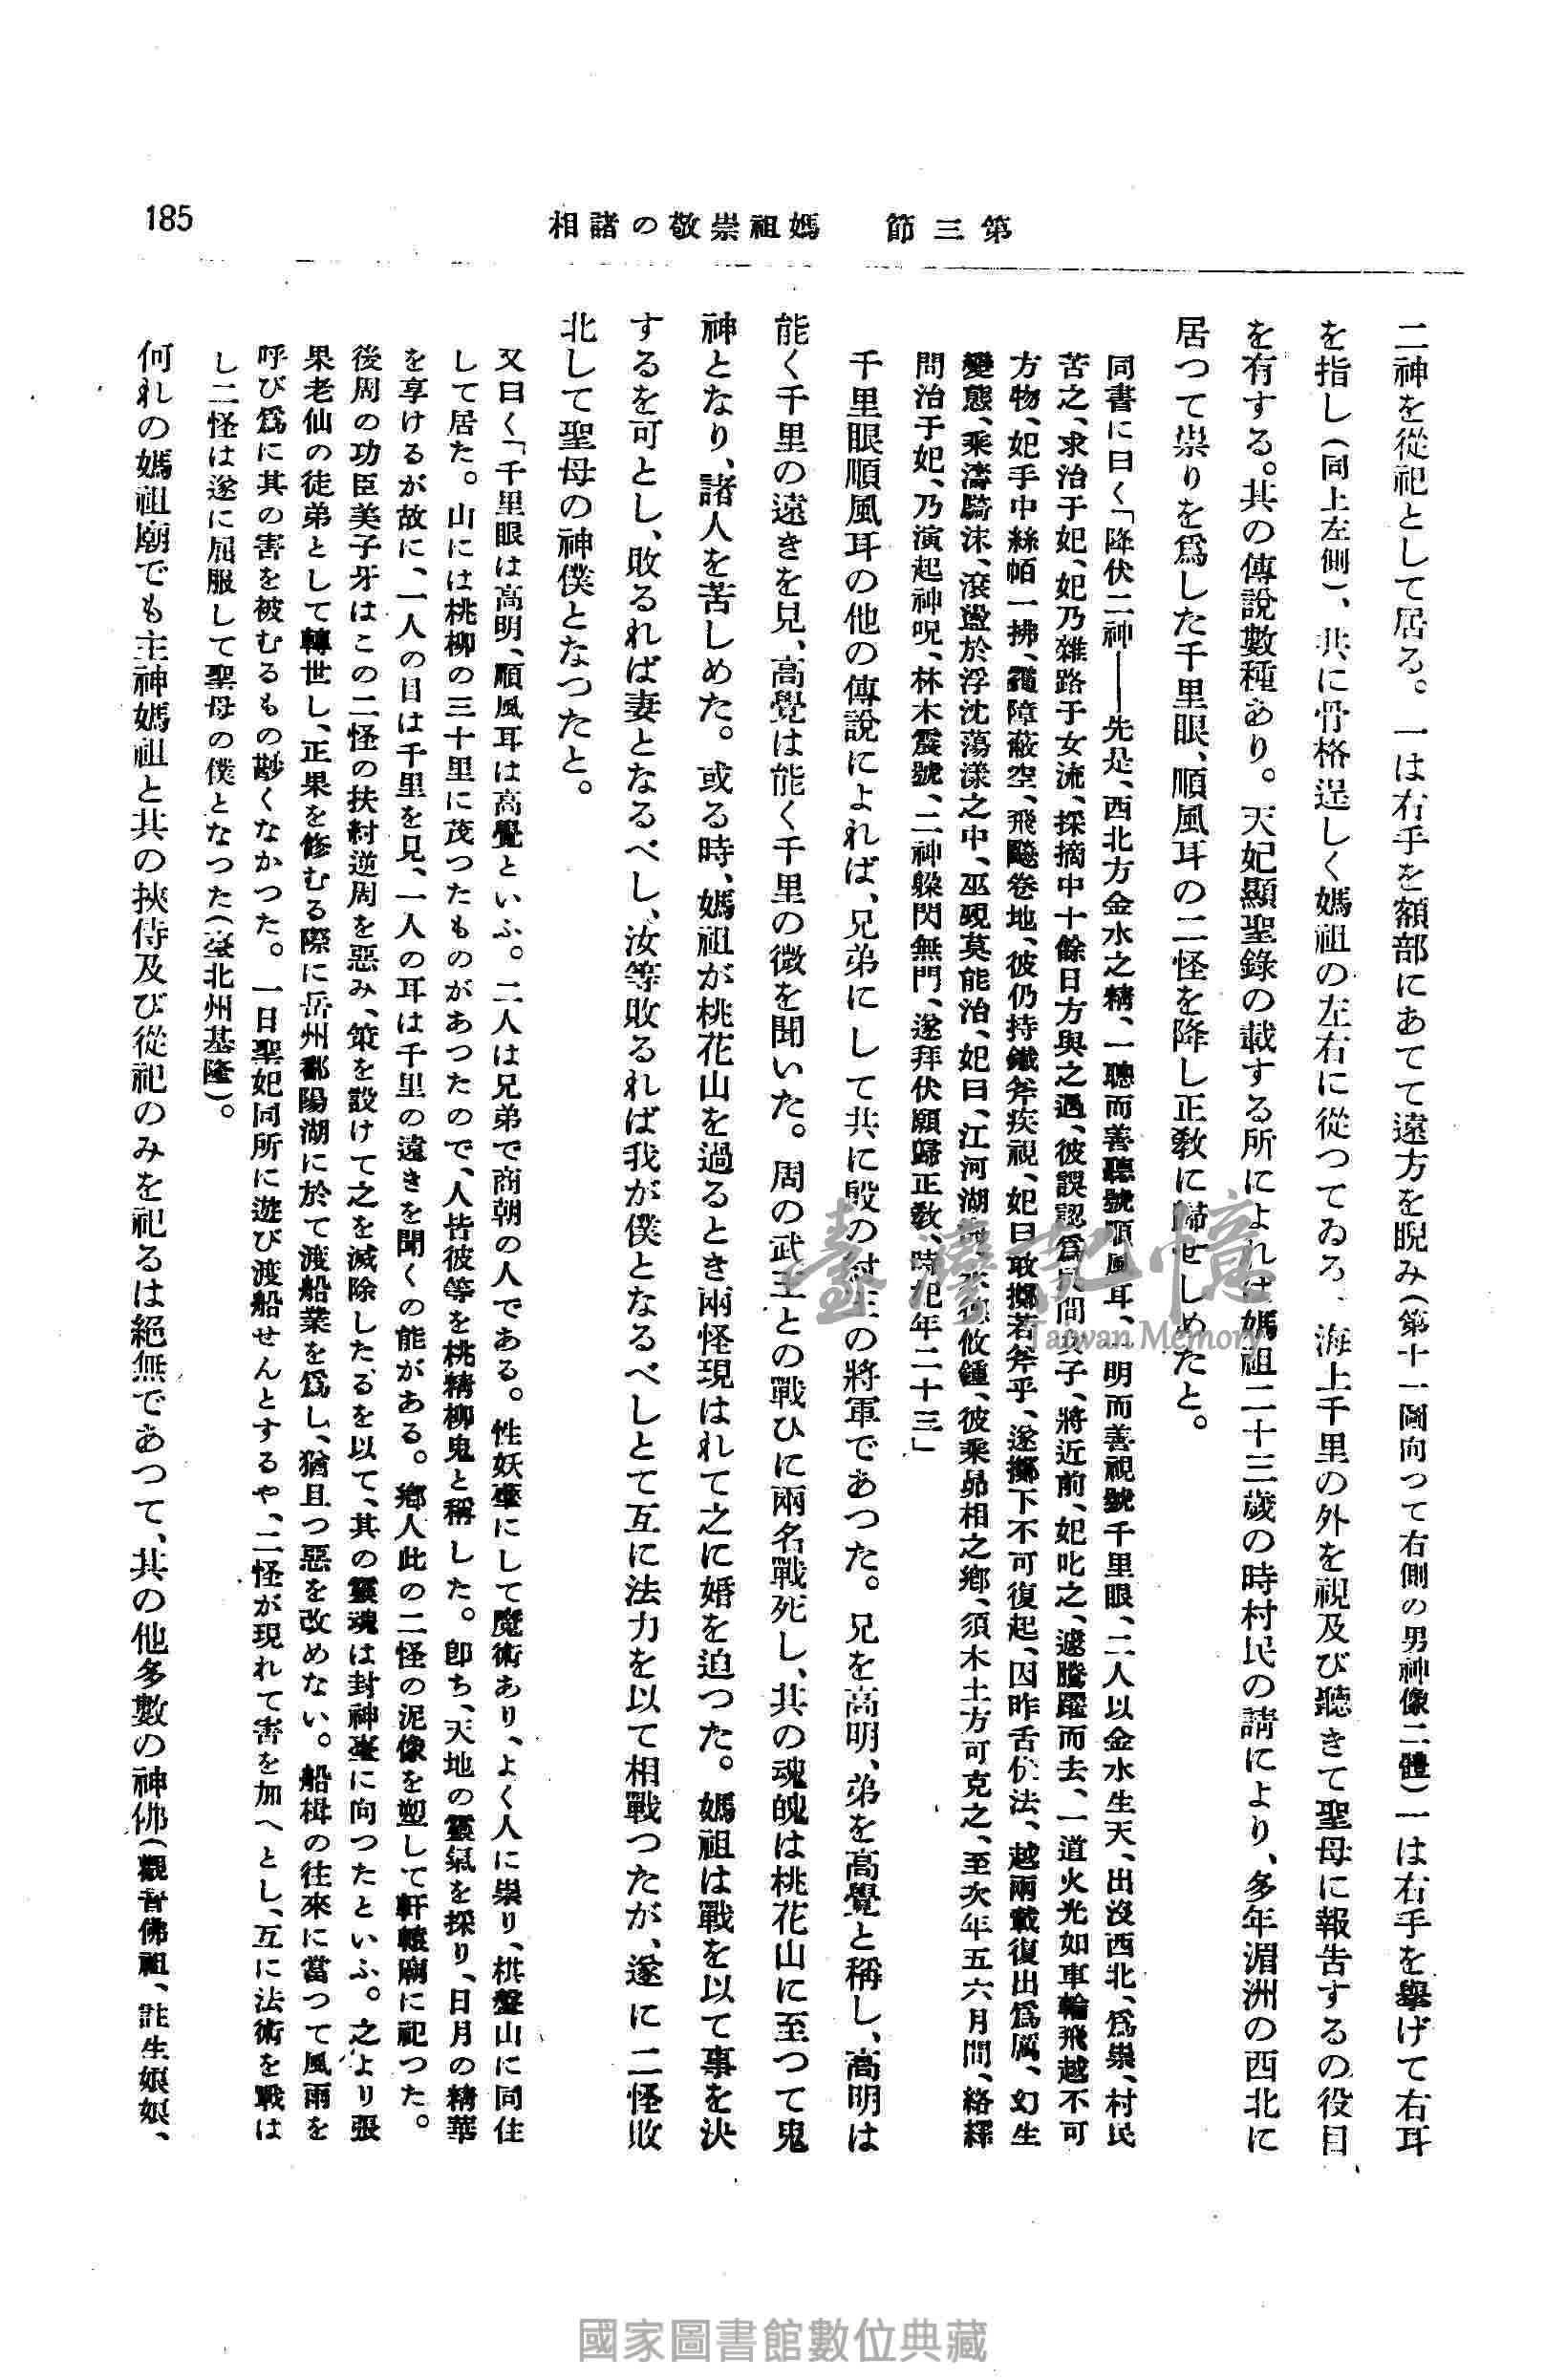 185
第三節 媽祖崇敬の諸相
二神を從祀として居る。一は右手を額部にあてて遠方を睨み(第十一圖向つて右側の男神像二體)一は右手を擧げて右耳
を指し(同上左側)、共に骨格逞しく媽祖の左右に從つてゐる、海上千里の外を視及び聽きて聖母に報告するの役目
を有する。其の傳說數種あり。天妃顯聖錄の載する所によれば媽祖二十三歲の時村民の請により、多年湄洲の西北に
居つて祟りを爲した千里眼、順風耳の二怪を降し正敎に歸せしめたと。
同書に曰く「降伏二神——先是、西北方金水之精、一聰而善聽號順風耳、一明而善視號千里眼、二人以金水生天、出沒西北、爲祟、村民
苦之、求治于妃、妃乃雜路于女流、採摘中十餘日方與之遇、彼誤認爲民間女子、將近前、妃叱之、遽騰躍而去、一道火光如車輪飛越不可
方物、妃手中絲帕一拂、靄障蔽空、飛飈卷地、彼仍持鐵斧疾視、妃曰敢擲若斧乎、遂擲下不可復起、因咋舌伏法、越兩載復出爲厲、幻生
變態、乘濤騎沫、滾盪於浮沈蕩漾之中、巫覡莫能治、妃曰、江河湖海、水德攸鍾、彼乘昴相之鄕、須木土方可克之、至次年五六月間、絡繹
問治于妃、乃演起神呪、林木震號、二神躱閃無門、遂拜伏願歸正敎、時妃年二十三」
千里眼順風耳の他の傳說によれば、兄弟にして共に殷の紂王の將軍であつた。兄を高明、弟を高覺と稱し、高明は
能く千里の遠きを見、高覺は能く千里の微を聞いた。周の武王との戰ひに兩名戰死し、其の魂魄は桃花山に至つて鬼
神となり、諸人を苦しめた。或る時、媽祖が桃花山を過るとき兩怪現はれて之に婚を迫つた。媽祖は戰を以て事を決
するを可とし、敗るれば妻となるべし、汝等敗るれば我が僕となるべしとて互に法力を以て相戰つたが、遂に二怪敗
北して聖母の神僕となつたと。
又曰く「千里眼は高明、順風耳は高覺といふ。二人は兄弟で商朝の人である。性妖孽にして魔術あり、よく人に祟り、棋盤山に同住
して居た。山には桃柳の三十里に茂つたものがあつたので、人皆彼等を桃精柳鬼と稱した。卽ち、天地の靈氣を採り、日月の精華
を享けるが故に、一人の目は千里を見、一人の耳は千里の遠きを聞くの能がある。鄕人此の二怪の泥像を塑して軒轅廟に祀つた。
後周の功臣美子牙はこの二怪の扶紂逆周を惡み、策を設けて之を滅除したるを以て、其の靈魂は封神臺に向つたといふ。之より張
果老仙の徒弟として轉世し、正果を修むる際に岳州鄱陽湖に於て渡船業を爲し、猶且つ惡を改めない。船楫の往來に當つて風雨を
呼び爲に其の害を被むるもの尠くなかつた。一日聖妃同所に遊び渡船せんとするや、二怪が現れて害を加へとし、互に法術を戰は
し二怪は遂に屈服して聖母の僕となつた(臺北州基隆)。
何れの媽祖廟でも主神媽祖と其の挾侍及び從祀のみを祀るは絕無であつて、其の他多數の神佛(觀音佛祖、註生娘娘、
臺灣記憶
Taiwan Memory
國家圖書館數位典藏